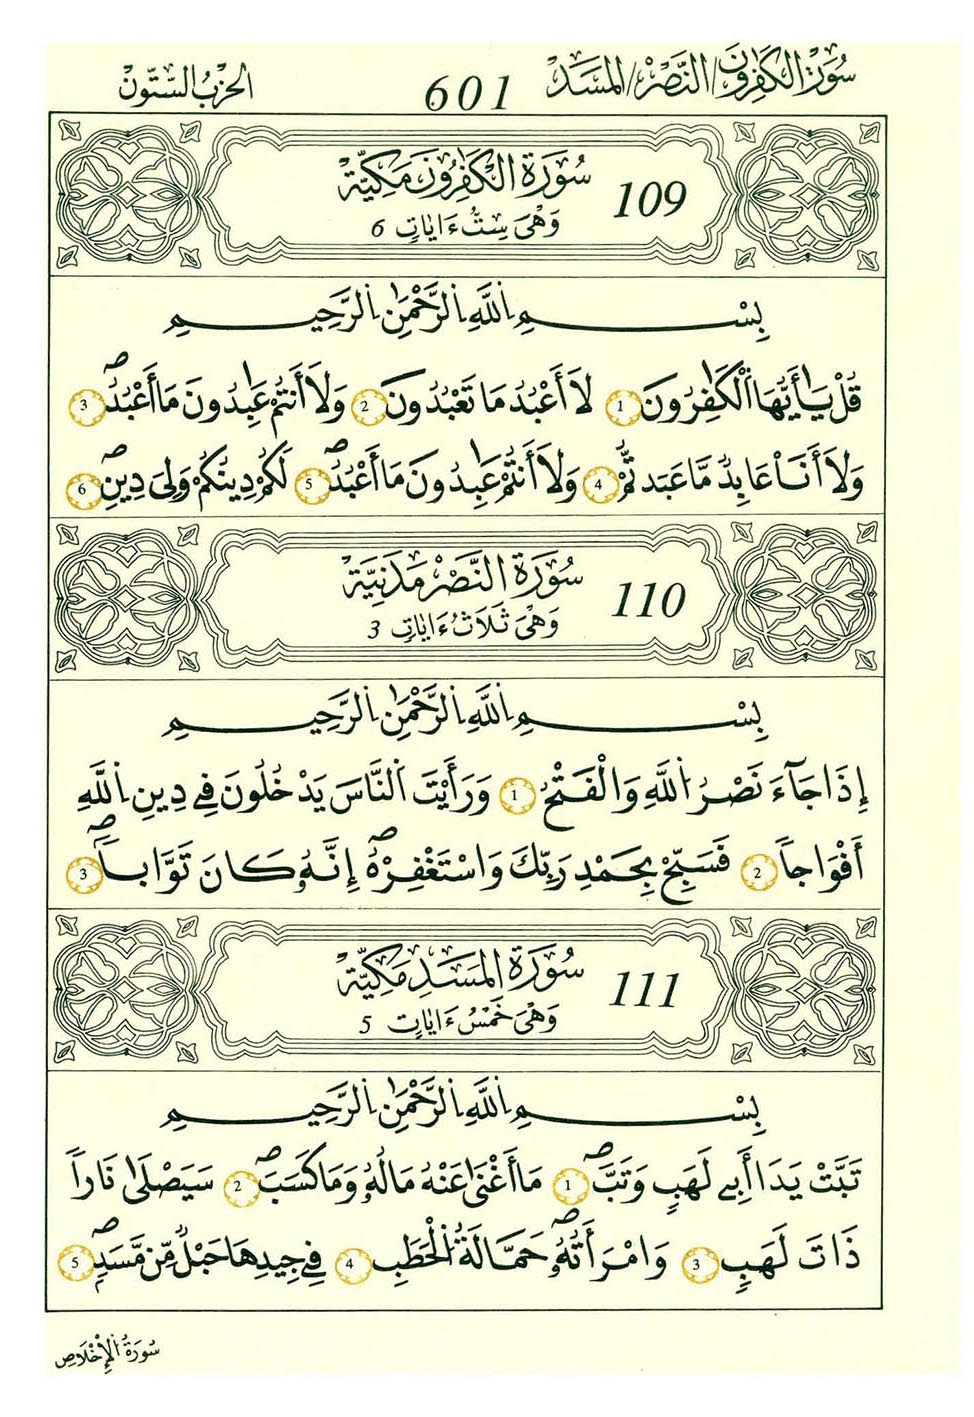 سُورَةُ الكَٰفِرُونَ/النَّصْرُ/المَسَدُ 601 الحِزْبُ السِّتُّونَ
سُورَةُ الكَٰفِرُونَ مَكِيَّةٌ 109
وَهْىَ سِتُّ ءَايَاتٍ 6
بِسْمِ اِللَّهِ اِلرَّحْمَٰنِ اِلرَّحِيمِ
قُلْ يَٰأَيُّهَا اَلْكَٰفِرُونَ 1 لَا أَعْبُدُ مَا تَعْبُدُونَ 2 وَلَا أَنتُمْ عَٰبِدُونَ مَا أَعْبُدُ 3
وَلَا أَنَا عَابِدٌ مَّا عَبَدتُّمْ 4 وَلَا أَنتُمْ عَٰبِدُونَ مَا أَعْبُدُ 5 لَكُمْ دِينُكُمْ وَلِىَ دِينِ 6
سُورَةُ النَّصْرِ مَدَنِيَّةٌ 110
وَهْىَ ثَلَاثُ ءَايَاتٍ 3
بِسْمِ اِللَّهِ اِلرَّحْمَٰنِ اِلرَّحِيمِ
إِذَا جَآءَ نَصْرُ اُللَّهِ وَالْفَتْحُ 1 وَرَأَيْتَ اَلنَّاسَ يَدْخُلُونَ فِے دِينِ اِللَّهِ
أَفْوَاجاً 2 فَسَبِّحْ بِحَمْدِ رَبِّكَ وَاسْتَغْفِرْهُ إِنَّهُۥ كَانَ تَوَّاباً 3
سُورَةُ المَسَدِ مَكِيَّةٌ 111
وَهْىَ خَمْسُ ءَايَاتٍ 5
بِسْمِ اِللَّهِ اِلرَّحْمَٰنِ اِلرَّحِيمِ
تَبَّتْ يَدَا أَبِے لَهَبٍ وَتَبَّ 1 مَا أَغْنَىٰ عَنْهُ مَالُهُۥ وَمَا كَسَبَ 2 سَيَصْلَىٰ نَاراً
ذَاتَ لَهَبٍ 3 وَامْرَأَتُهُۥ حَمَّالَةُ اُلْحَطَبِ 4 فِے جِيدِهَا حَبْلٌ مِّن مَّسَدٍ 5
سُورَةُ اُلْإِخْلَاصِ